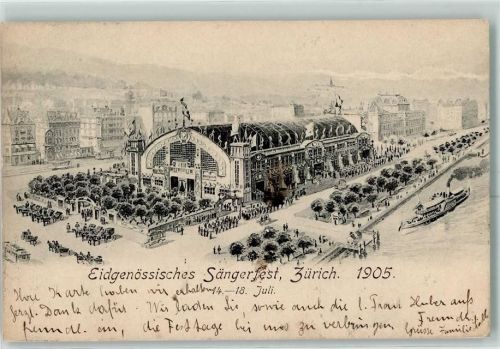 Eidgenössisches Sängerfest, Zürich. 1905.
14.–18. Juli.
Ihre Karte haben wir erhalten
herzl. Dank dafür. Wir laden Sie, sowie auch die l. Frau Huber aufs
freundl. ein, die Festtage bei uns zu verbringen Freundl.
Grüsse Familie